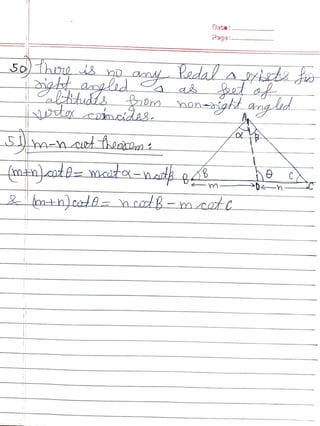 Date:
Page:
50) There is no any Pedal △ exists for
right angled △ as feet of
altitudes from non-right angled
vertex coincides.
51) m-n cot Theorem:
A
α β
(m+n)cotθ = mcotα - ncotβ
B B θ C C
m D n
& (m+n)cotθ = ncotB - mcotC